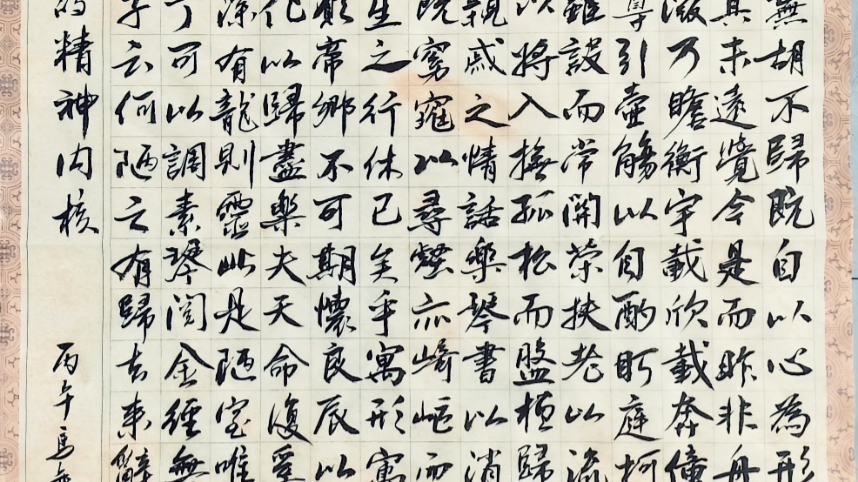 無胡不歸既自以心為形
其未遠覺今是而昨非舟
微乃瞻衡宇載欣載奔僮
引壺觴以自酌眄庭柯
雖設而常關策扶老以流
以將入撫孤松而盤桓歸
親戚之情話樂琴書以消
既窈窕以尋壑亦崎嶇而
生之行休已矣乎寓形寓
願帝鄉不可期懷良辰以
化以歸盡樂夫天命復奚
深有龍則靈此是陋室唯
丁可以調素琴閱金經無
子云何陋之有歸去來辭
的精神内核
丙午馬